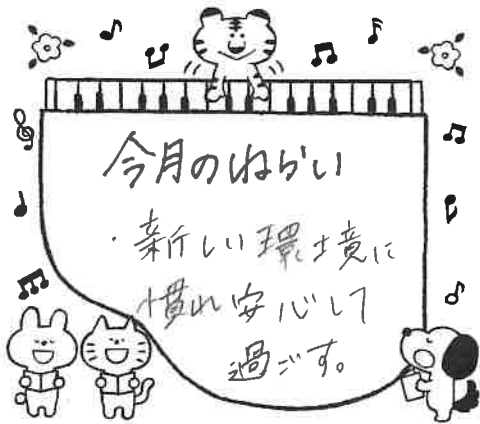 今月のねらい
・新しい環境に
慣れ安心して
過ごす。